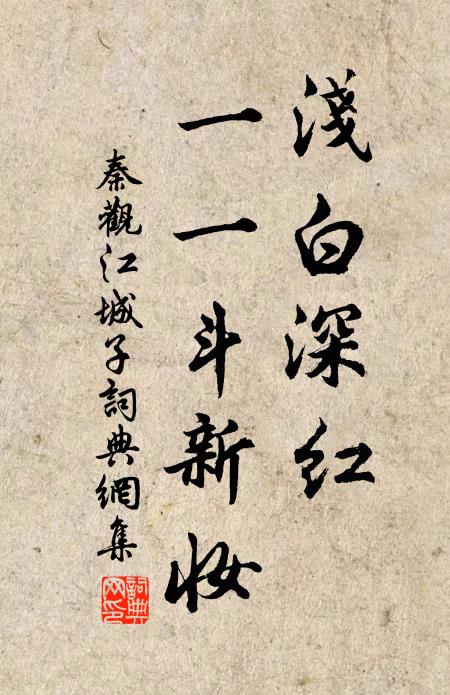 淺白深紅
一一斗新妝
秦觀江城子詞典網集
詞典網印